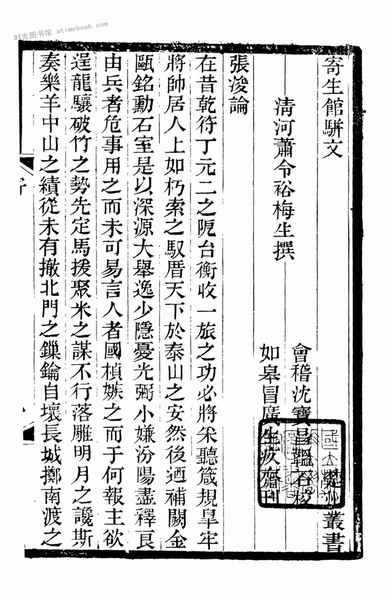 时光图书馆 atimebook.com
寄生館駢文
叢書
清河蕭令裕梅生撰
會稽沈寶昌韞石校
如皋冒廣生疚齋刊
張浚論
在昔乾符丁元二之阸台衡收一旅之功必將采聽箴規皐牢
將帥居人上如朽索之馭厝天下於泰山之安然後迺補闕金
甌銘勳石室是以深源大舉逸少隱憂光弼小嫌汾陽盡釋良
由兵者危事用之而未可易言人者國楨嫉之而于何報主欲
逞龍驤破竹之勢先定馬援聚米之謀不行落雕明月之讒斯
奏樂羊中山之績從未有撤北門之鏁鑰自壞長城擲南渡之